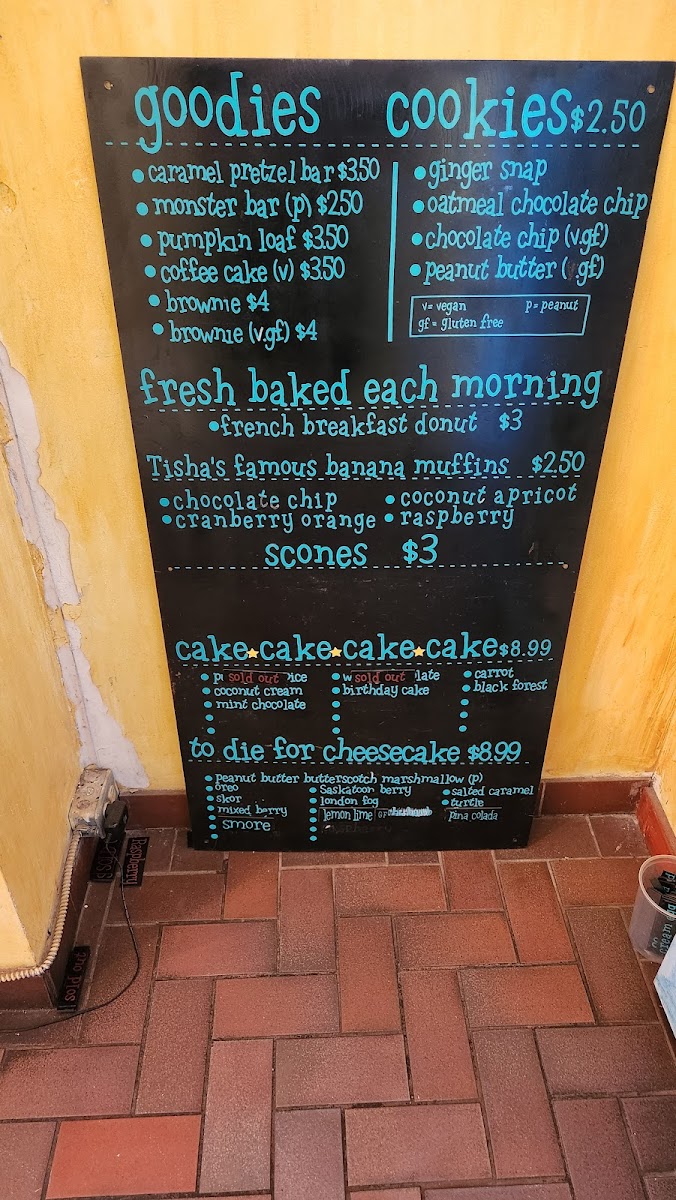 goodies
• caramel pretzel bar $3.50
• monster bar (p) $2.50
• pumpkin loaf $3.50
• coffee cake (v) $3.50
• brownie $4
• brownie (v.gf) $4
cookies $2.50
• ginger snap
• oatmeal chocolate chip
• chocolate chip (v.gf)
• peanut butter ( .gf)
v= vegan p= peanut
gf= gluten free
fresh baked each morning
• french breakfast donut $3
Tisha's famous banana muffins $2.50
• chocolate chip • coconut apricot
• cranberry orange • raspberry
scones $3
cake★cake★cake★cake $8.99
• p sold out ice
• coconut cream
• mint chocolate
• w sold out late
• birthday cake
• carrot
• black forest
to die for cheesecake $8.99
• peanut butter butterscotch marshmallow (p)
• oreo
• skor
• mixed berry
• smore
• Saskatoon berry
• london fog
• lemon lime
• salted caramel
• turtle
pina colada
Raspberry
sold out
cream